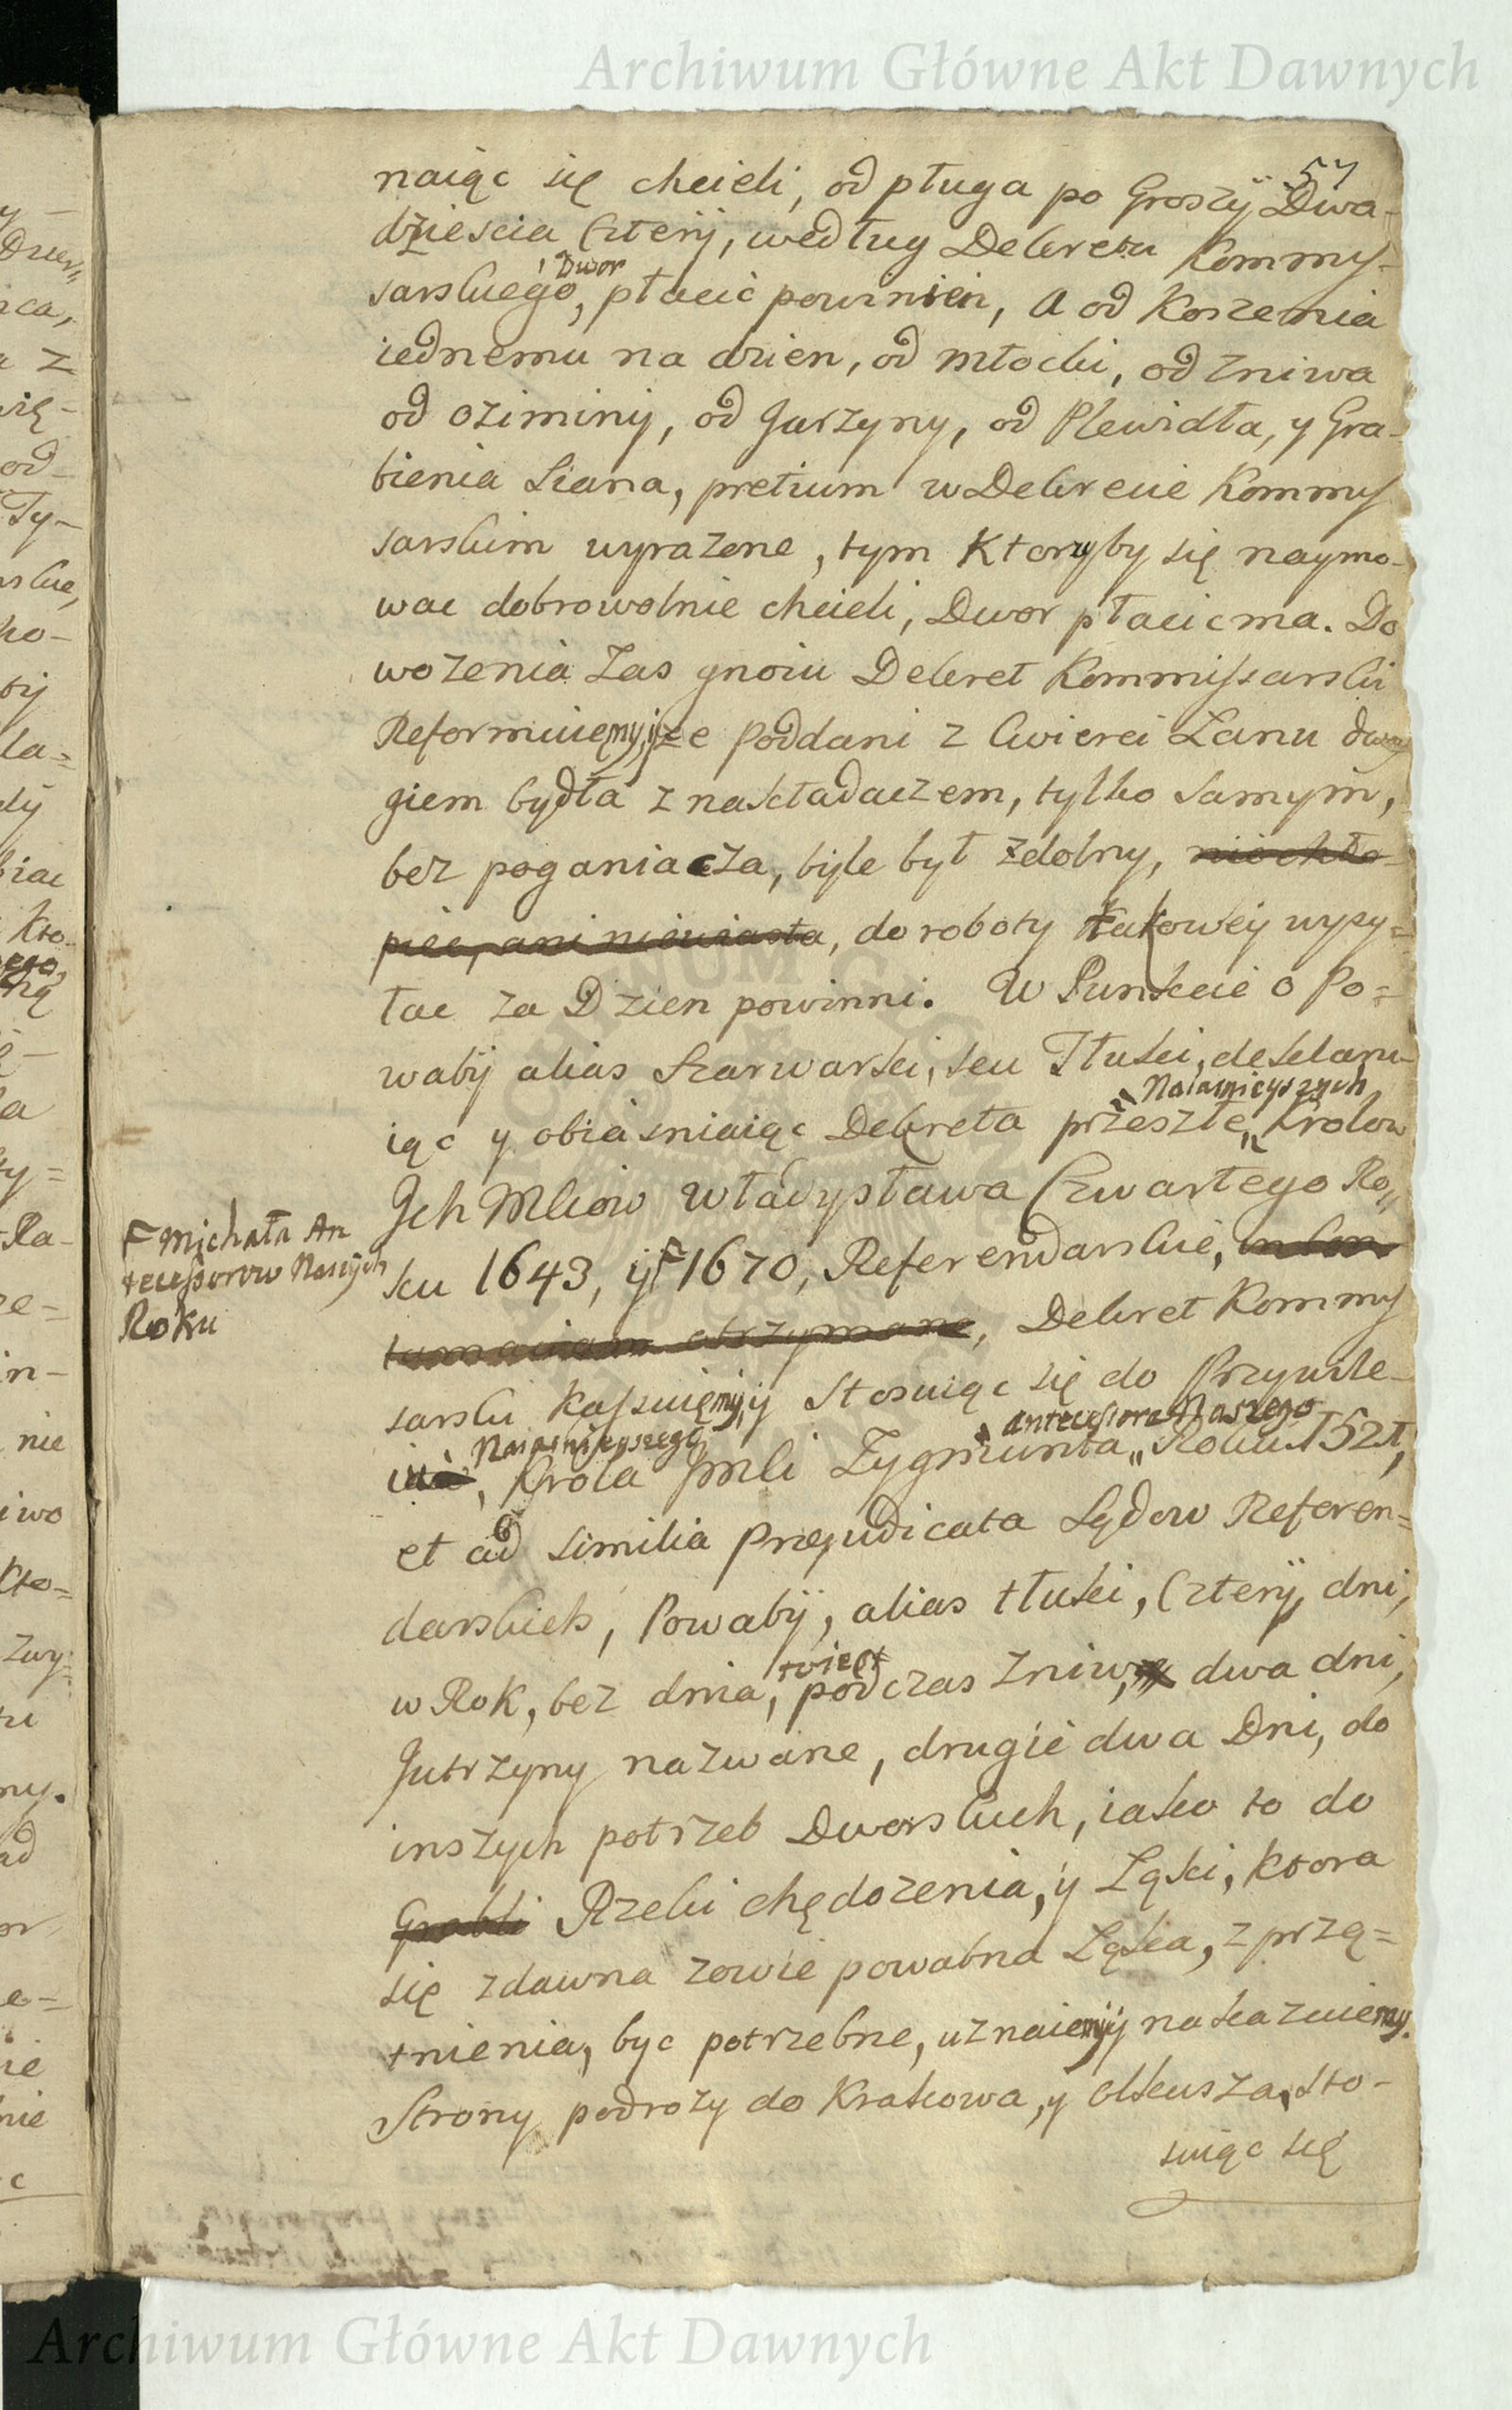 Archiwum Główne Akt Dawnych
57
naiąc się chcieli, od pługa po Groszÿ Dwa-
dzieścia Czterÿ, według Dekretu Kommy-
Dwor
sarskiego, płacić powinien, A od Koszenia
iednemu na dzien, od Młocki, od zniwa
od oziminÿ, od Jarzyny, od Plewidła, y Gra-
bienia Siana, pretium w Dekrecie Kommy
sarskim wyrazone, tym Ktoryby się naymo-
wac dobrowolnie chcieli, Dwor płacic ma. Do
wozenia Zas gnoiu Dekret Kommissarski
Reformuiemy, ize Poddani z Cwierci Łanu
giem bydła z nakładaczem, tylko samym,
bez poganiacza, byle był zdolny, nie chło-
piec, ani niewiasta, do roboty takowey wysy=
łac za Dzien powinni. W Punkcie o Po=
wabÿ alias Szarwarki, seu Tłuki, deklaru-
Naiasnieyszych
iąc y obiasniaiąc Dekreta przeszłe, Krolow
Jch Mciow Władysława Czwartego Ro
ku 1643, ÿ 1670, Referendarskie,
Michała An
tecessorow Naszych
Roku
otrzymane, Dekret Kommy
sarski Kassuiemy, y Stosuiąc się do Przywile-
Naiasnieyszego
antecessora Naszego
Krola Jmci Zygmunta Roku 1521,
et ad similia Prejudicata Sądow Referen=
darskich, Powabÿ, alias tłuki, Czterÿ, dni,
w Rok, bez dnia, podczas zniw, dwa dni,
Jutrzyny nazwane, drugie dwa Dni, do
inszych potrzeb Dworskich, iako to do
Grobli Rzeki chędozenia, y Łąki, Ktora
się zdawna zowie powabna Łąka, zprzą=
tnienia, byc potrzebne, uznaiemy y nakazuiemy.
Strony podrozy do Krakowa, y Olkusza, sto-
suiąc się
Archiwum Główne Akt Dawnych